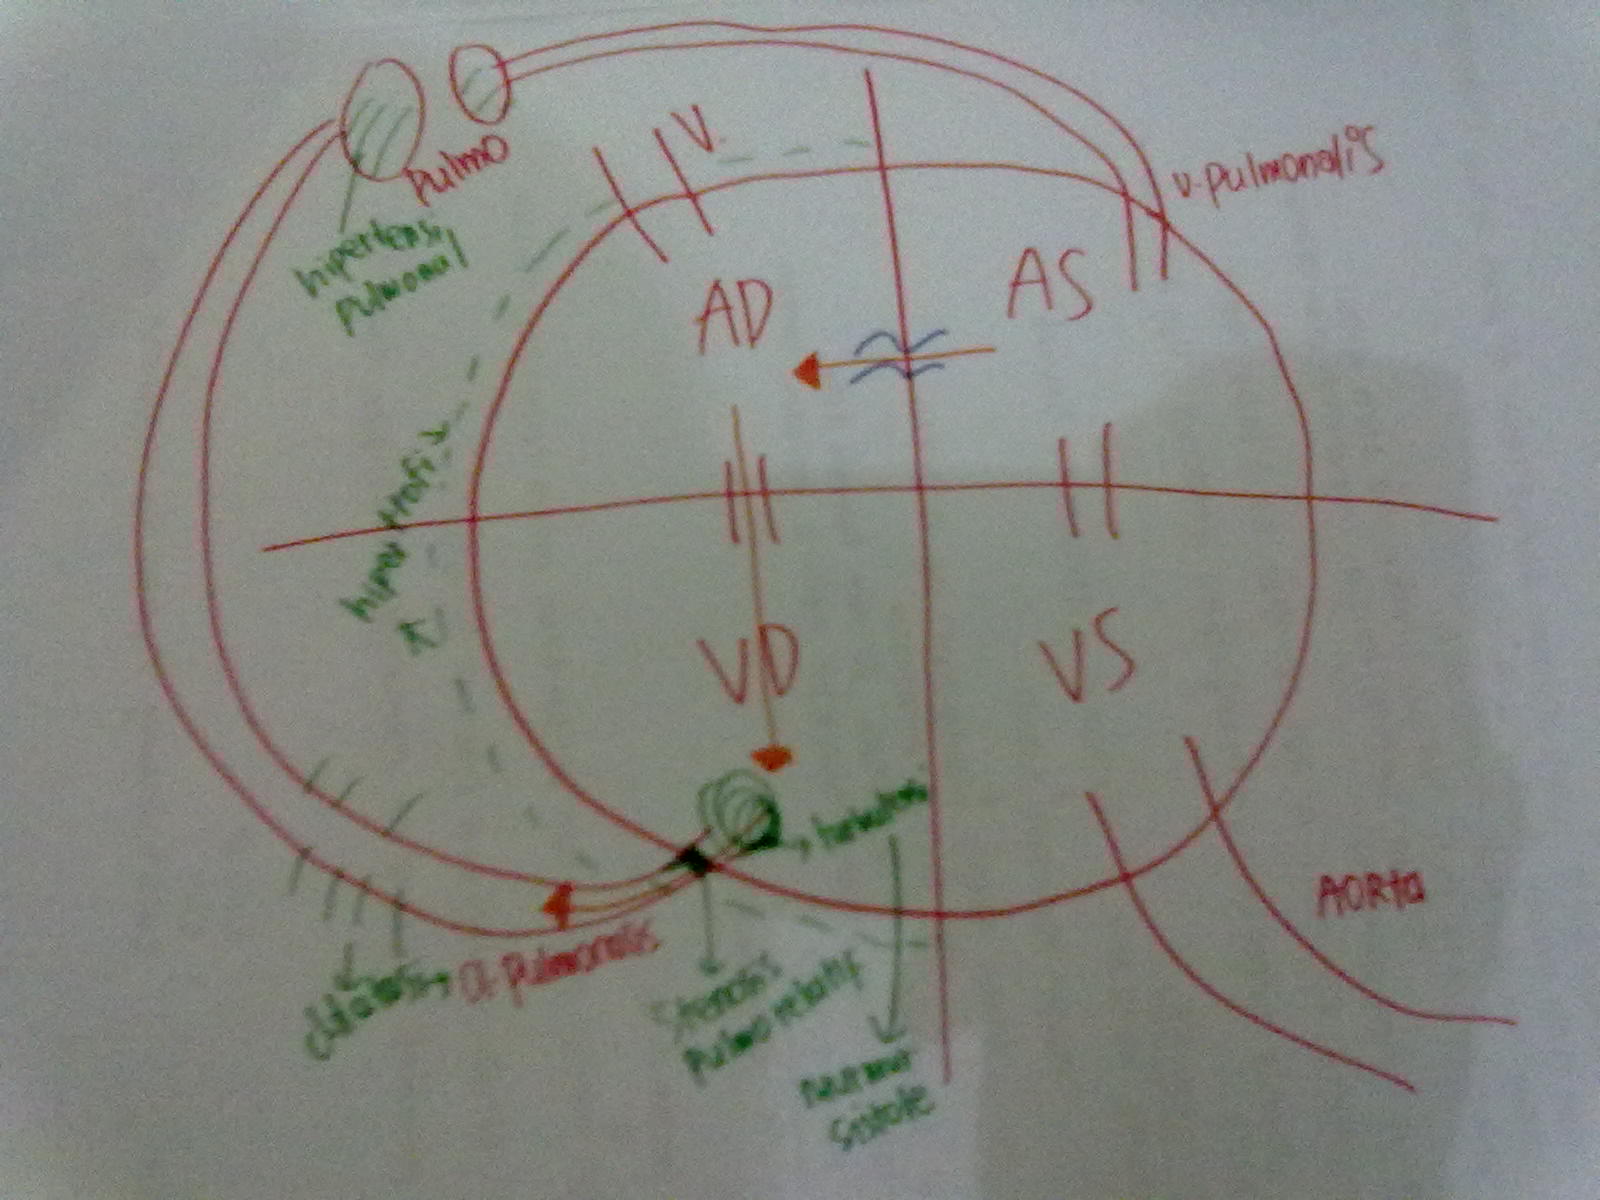 pulmo
V.
v. pulmonalis
hipertensi
pulmonal
AD
AS
hipertrofi
VD
VS
turbulensi
AORta
a. pulmonalis
dilatasi
Stenosis
pulmo relatif
murmur
sistole